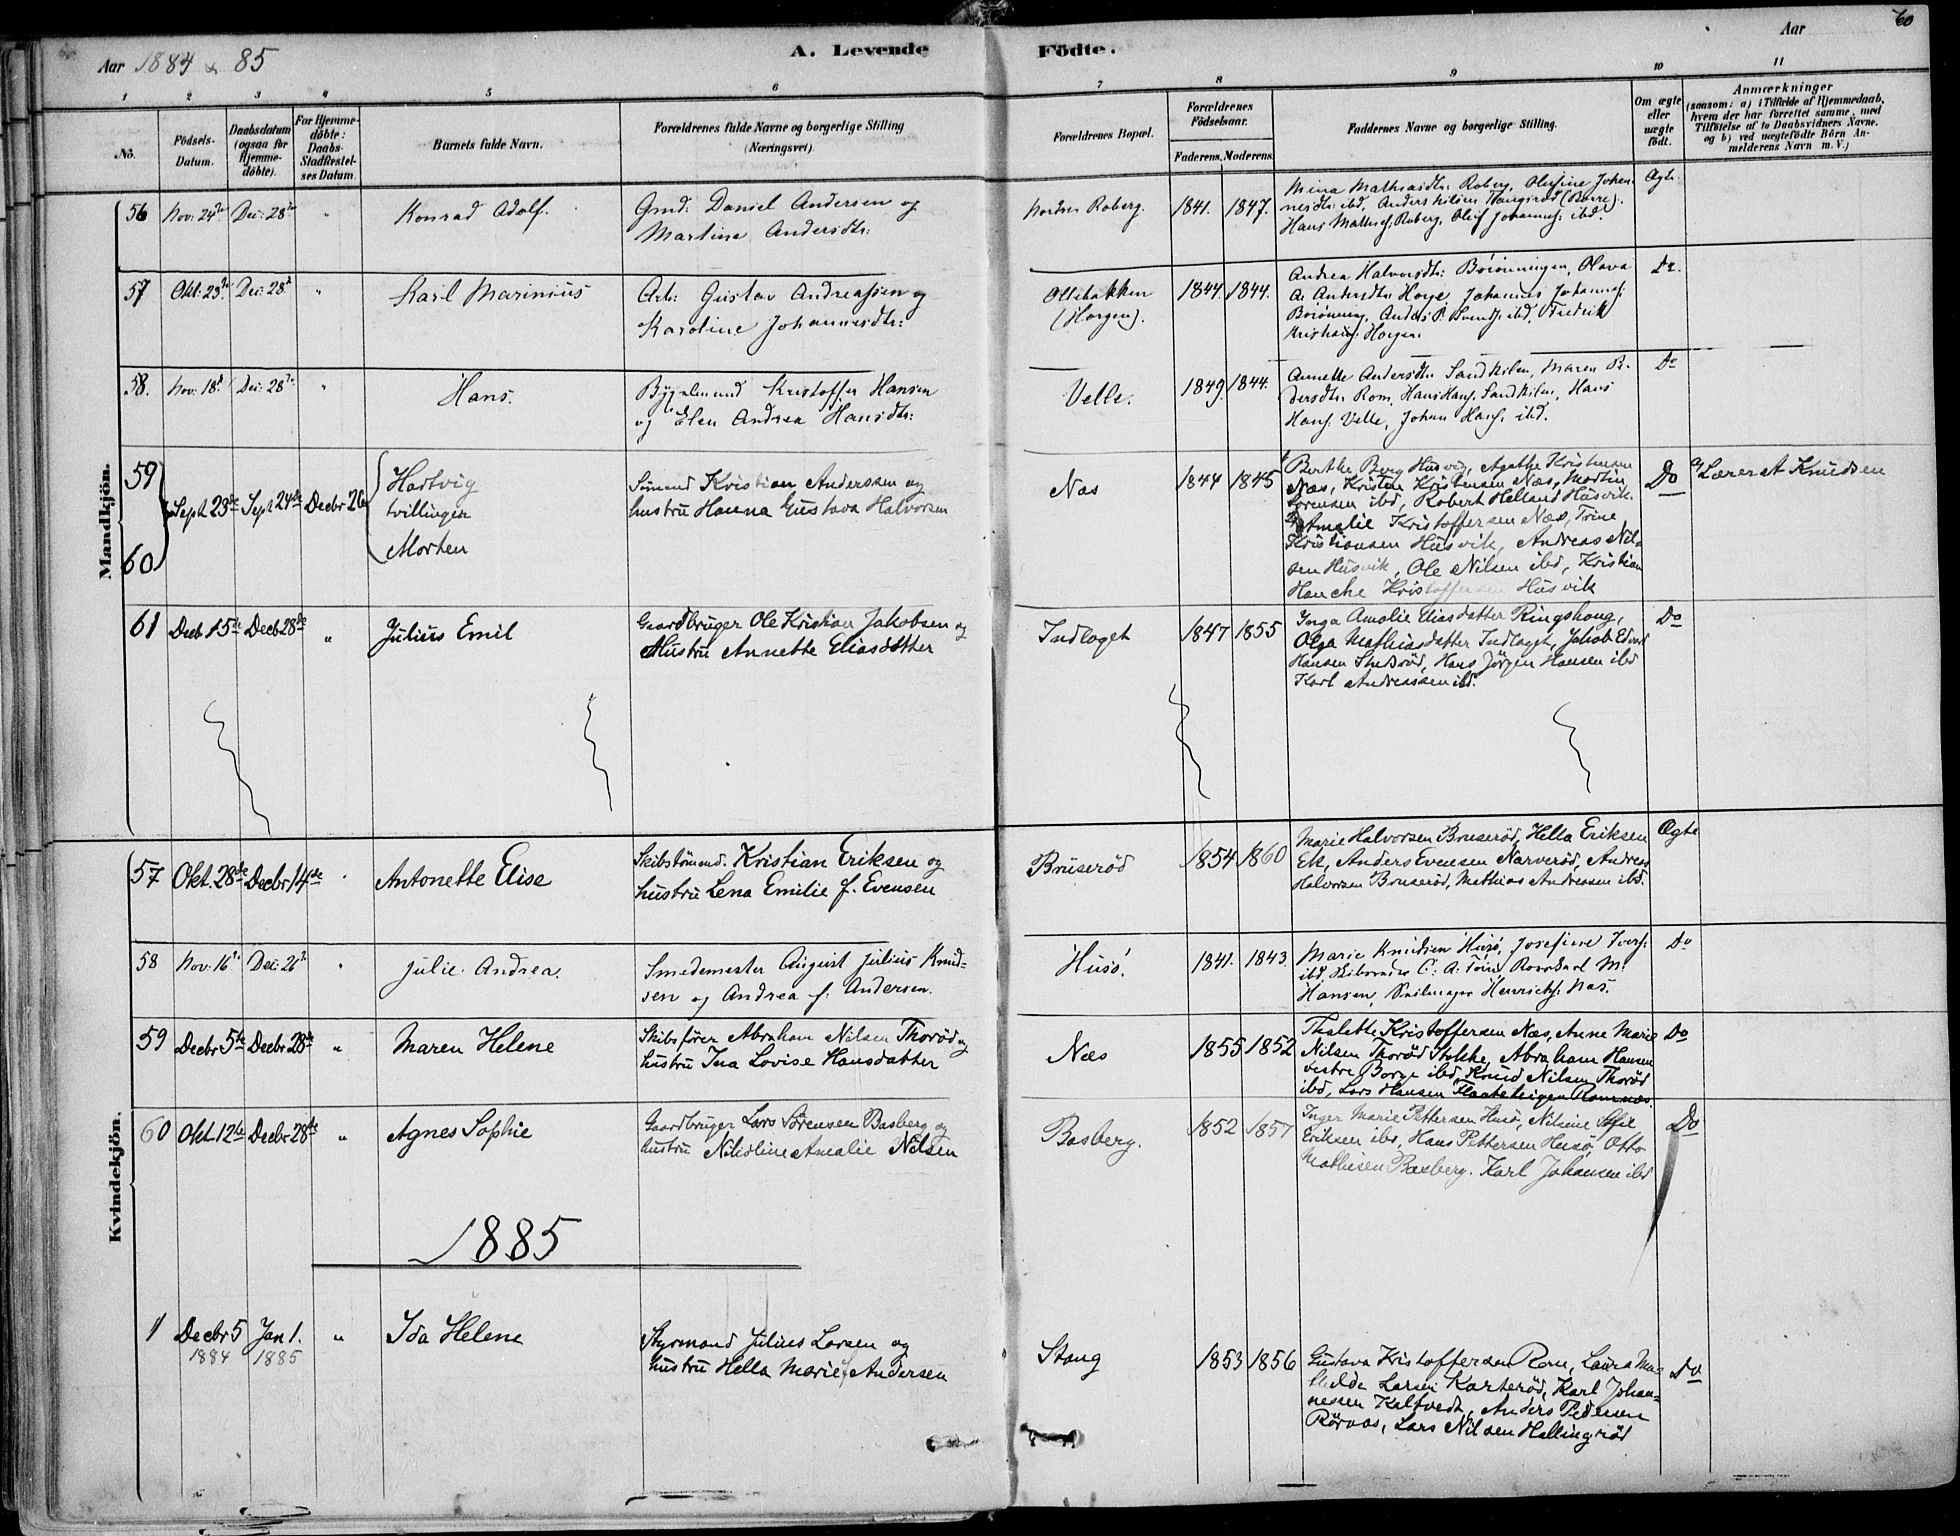 60
Aar 1884 & 85
A. Levende
Födte.
Aar
1 2 3 4 5 6 7 8 9 10 11
No.
Födsels-Datum.
Daabsdatum (ogsaa för Hjemme-döbte).
For Hjemme-döbte: Daabs-Stadfæstel-ses Datum.
Barnets fulde Navn.
Forældrenes fulde Navne og borgerlige Stilling (Næringsvei)
Forældrenes Bopæl.
Forældrenes Födselsaar.
Faderens. Moderens.
Faddernes Navne og borgerlige Stilling.
Om ægte eller uægte födt.
Anmærkninger
(saasom: a) i Tilfælde af Hjemmedaab, hvem der har forrettet samme, med Tilföielse af to Daabsvidners Navne. og b) ved uægtefödte Börn Anmelderens Navn m. V.)
Mandkjön.
56 Nov: 24de Dec: 28de " Konrad Adolf. Gmd: Daniel Andersen og
Martine Andersdtr:
Nordre Roberg. 1841. 1847. Mina Mathiasdtr: Roberg, Olufine Johan-
nesdtr: ibd, Anders Nilsen Haugsrød (Borre),
Hans Mathisf. Roberg, Oluf Johannesf. ibd. Ægte
57 Okt: 23de Dec: 28de " Karl Marinius Arb: Gustav Andreassen og
Karoline Johannesdtr:
Ollebakken
(Horgen). 1844. 1844. Andrea Halvorsdtr: Borønningen, Olava
Andersdtr: Horge, Johannes Johannesf:
Borønning, Anders P. Svendsf. ibd, Fredrik
Kristians. Horgen. Do.
58. Nov: 18de Dec: 28de " Hans. Bygselmand Kristoffer Hansen
og Elen Andrea Hansdtr:
Velle. 1849. 1844. Annette Andersdtr: Sandkilen, Maren
dersdtr: Rom, Hans Hansf. Sandkilen, Hans
Hansf. Velle, Johan Hansf. ibd. Do
59 Sept 23de Sept 24de Decbr 26de Hartvig Sømand Kristian Anderssen og
tvillinger hustru Hanna Gustava Halvorsen
60 Morten
Næs 1844 1845 Berthe Berg Husvig, Agathe Kristensen
Næs, Kristen Kristensen Næs, Martin
Sørensen ibd, Robert Helland Husvik.
Amalie Kristoffersen Næs, Trine
Kristiansen Husvik, Andreas Nil-
sen Husvik, Ole Nilsen ibd, Kristian
Hanche Kristoffersen Husvik Do Lærer A Knudsen
61 Decb 15de Decb 28de " Julius Emil Gaardbruger Ole Kristian Jakobsen og
Hustru Annette Eliasdatter
Indlaget 1847 1855 Inga Amalie Eliasdatter Ringshaug,
Olga Mathiasdatter Indlaget, Jakob Edvard
Hansen, Hans Jörgen Hansen ibd
Karl Andreassen ibd. Do
Kvindekjön.
57 Okt. 28de Decbr 14de " Antonette Elise Skibstømmd. Kristian Eriksen og
hustru Lena Emilie f. Evensen
Bruserød 1854 1860 Marie Halvorsen Bruserød, Hella Eriksen
Ek, Anders Evensen Narverød, Andreas
Halvorsen Bruserød, Mathias Andreasen ibd. Ægte
58 Nov: 16de Dec: 26de " Julie Andrea. Smedemester August Julius Knud-
sen og Andrea f: Andersen.
Husö. 1841. 1843. Marie Knudsen Husö, Josefine Iversf:
ibd, C: A: Karl M:
Hansen, Seilmager Henriksf: Næs. Do
59 Decbr 5te Decbr 28de " Maren Helene Skibsfører Abraham Nilsen Thorød og
hustru Ina Lovise Hansdatter
Næs 1855 1852 Thalette Kristoffersen Næs, Anne Marie
Nilsen Thorød Stokke, Abraham Hansen
vestre Borge ibd, Knud Nilsen Thorød
ibd, Lars Hansen Flaateteigen Ramnæs. Do
60 Okt. 12te Decbr 28de " Agnes Sophie Gaardbruger Lars Sørensen Basberg og
hustru Nikoline Amalie Nilsen
Basberg. 1852 1857 Inger Marie Pettersen Husö, Nilsine Sofie
Eriksen ibd, Hans Pettersen Husö, Otto
Mathisen Basberg, Karl Johansen ibd Do
1885
1 Decbr 5 Jan 1. " Ida Helene Styrmand Julius Larsen og
1884 1885 hustru Hella Marie f Andersen
Stang 1853 1856 Gustava Kristoffersen Rom, Laura Ma-
thilde Larsen Karterød, Karl Johan-
nessen Kalfvedt, Anders Pedersen
Rörvos, Lars Nilsen Hellingrød Do